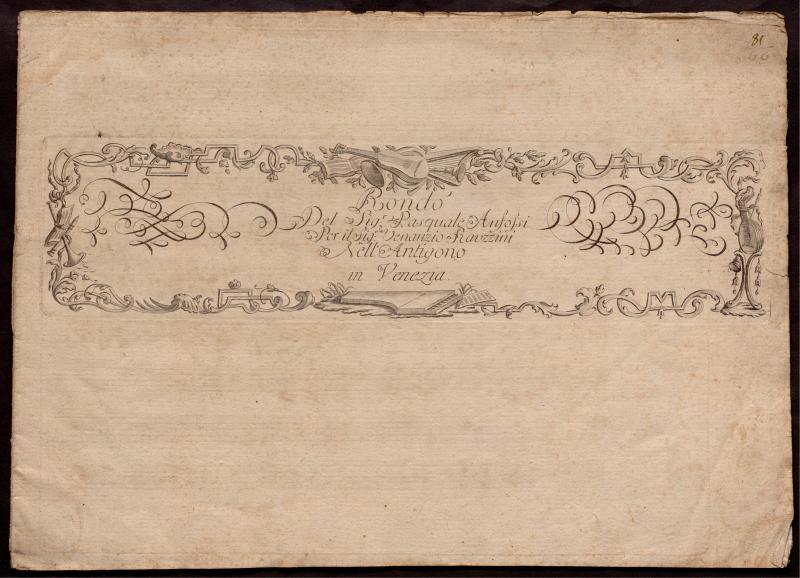 81
Rondó
Del Sig.r Pasquale Anfossi
Per il Sig.r Venanzio Rauzzini
Nell'Antigono
in Venezia.